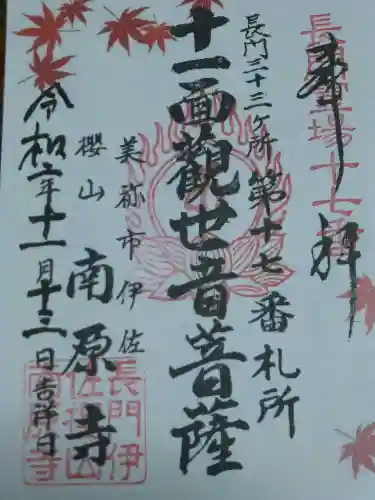 奉拝
長門霊場十七番
長門三十三ヶ所第十七番札所
十一面觀世音菩薩
美祢市伊佐
櫻山南原寺
令和二年十一月十三日吉祥日
長門伊
佐桜山
南原寺